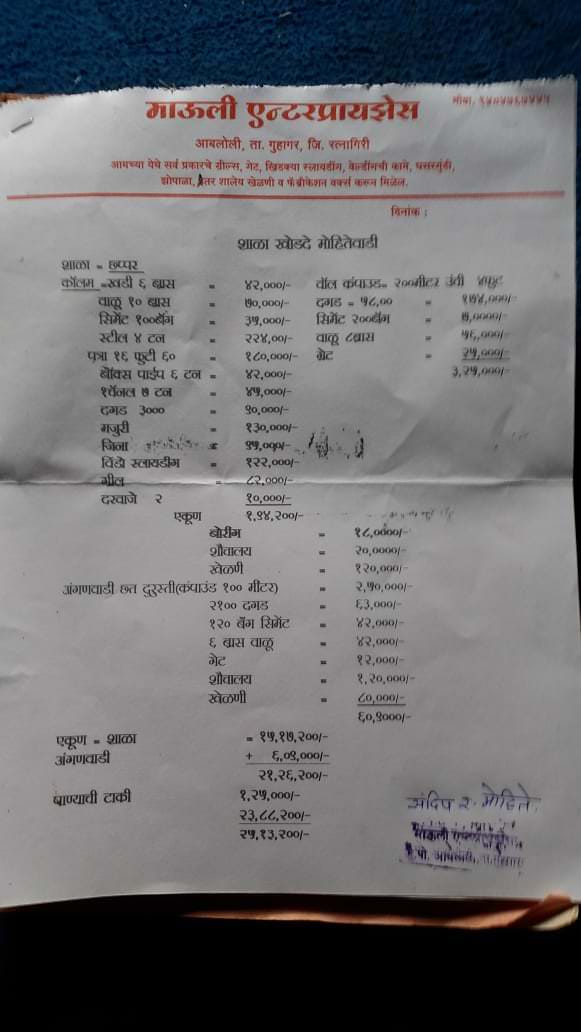 माऊली एन्टरप्रायझेस
आबलोली, ता. गुहागर, जि. रत्नागिरी
आमच्या येथे सर्व प्रकारचे ग्रील्स, गेट, खिडक्या स्लायडींग, वेल्डींगची कामे, घसरगुंडी,
झोपाळा, इतर शालेय खेळणी व फॅब्रीकेशन वर्क्स करुन मिळेल.
दिनांक :
शाळा खोडदे मोहितेवाडी
शाळा = छप्पर
कॉलम =खडी ६ ब्रास = ४२,०००/- वॉल कंपाउड= २००मीटर उंची ४फुट
वाळू १० ब्रास = ७०,०००/- दगड = ५८,०० = १७४,०००/-
सिमेंट १००बॅग = ३५,०००/- सिमेंट २००बॅग = ७,००००/-
स्टील ४ टन = २२४,००/- वाळू ८ब्रास = ५६,०००/-
पत्रा १६ फुटी ६० = १८०,०००/- गेट = २५,०००/-
बॉक्स पाईप ६ टन = ४२,०००/- ३,२५,०००/-
१चॅनल ७ टन = ४५,०००/-
दगड ३००० = ९०,०००/-
मजुरी = १३०,०००/-
जिना =
विंडो स्लायडींग = १२२,०००/-
ग्रील = ८२,०००/-
दरवाजे २ १०,०००/-
एकूण १,९४,२००/-
बोरींग = १८,००००/-
शौचालय = २०,००००/-
खेळणी = १२०,०००/-
अंगणवाडी छत दुरुस्ती(कंपाउंड १०० मीटर) = २,५०,०००/-
२१०० दगड = ६३,०००/-
१२० बॅग सिमेंट = ४२,०००/-
६ ब्रास वाळू = ४२,०००/-
गेट = १२,०००/-
शौचालय = १,२०,०००/-
खेळणी = ८०,०००/-
६०,९०००/-
एकूण = शाळा = १५,१७,२००/-
अंगणवाडी + ६,०९,०००/-
२१,२६,२००/-
पाण्याची टाकी १,२५,०००/-
२३,८८,२००/-
२५,१३,२००/-
संदिप र. मोहिते